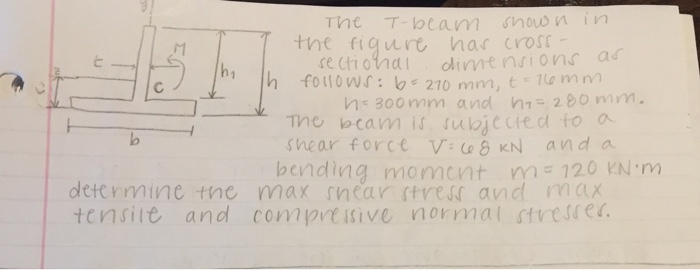 y
The T-beam shown in
the figure has cross-
sectional dimensions as
follows: b=270 mm, t=16mm
h=300mm and h1=280mm.
The beam is subjected to a
shear force V=68 KN and a
bending moment m=120 KN·m
determine the max shear stress and max
tensile and compressive normal stresses.
t
M
C
h1
h
z
c
b